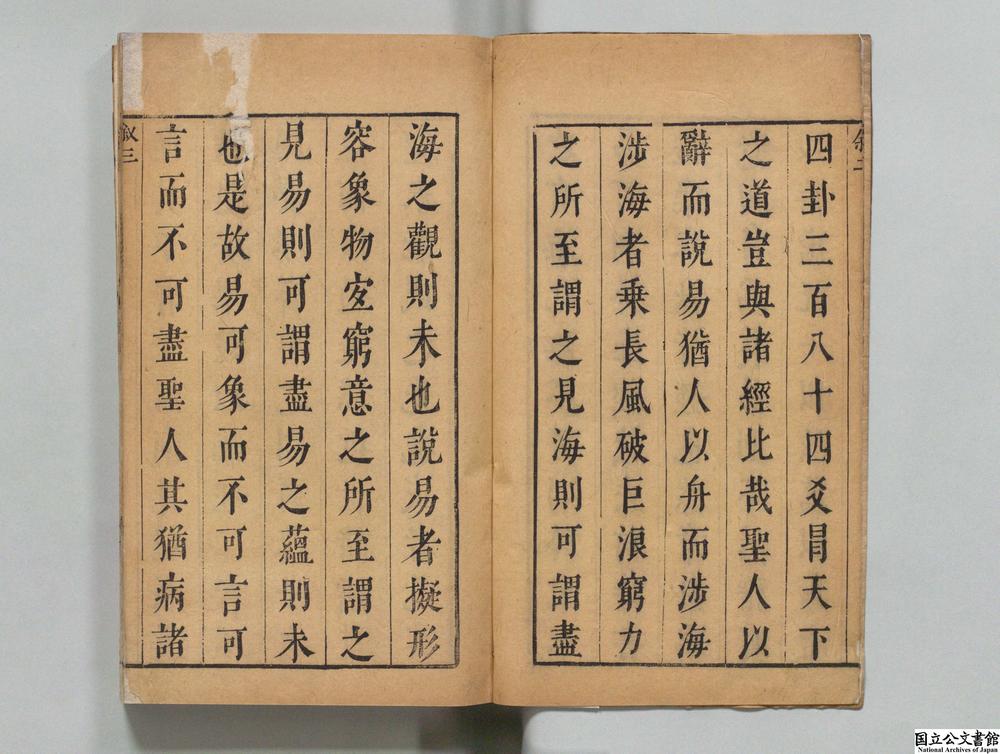 叙二
四卦三百八十四爻冐天下
之道豈與諸經比哉聖人以
辭而說易猶人以舟而涉海
涉海者乗長風破巨浪窮力
之所至謂之見海則可謂盡
海之觀則未也說易者擬形
容象物宐窮意之所至謂之
見易則可謂盡易之蘊則未
也是故易可象而不可言可
言而不可盡聖人其猶病諸
叙三
国立公文書館
National Archives of Japan